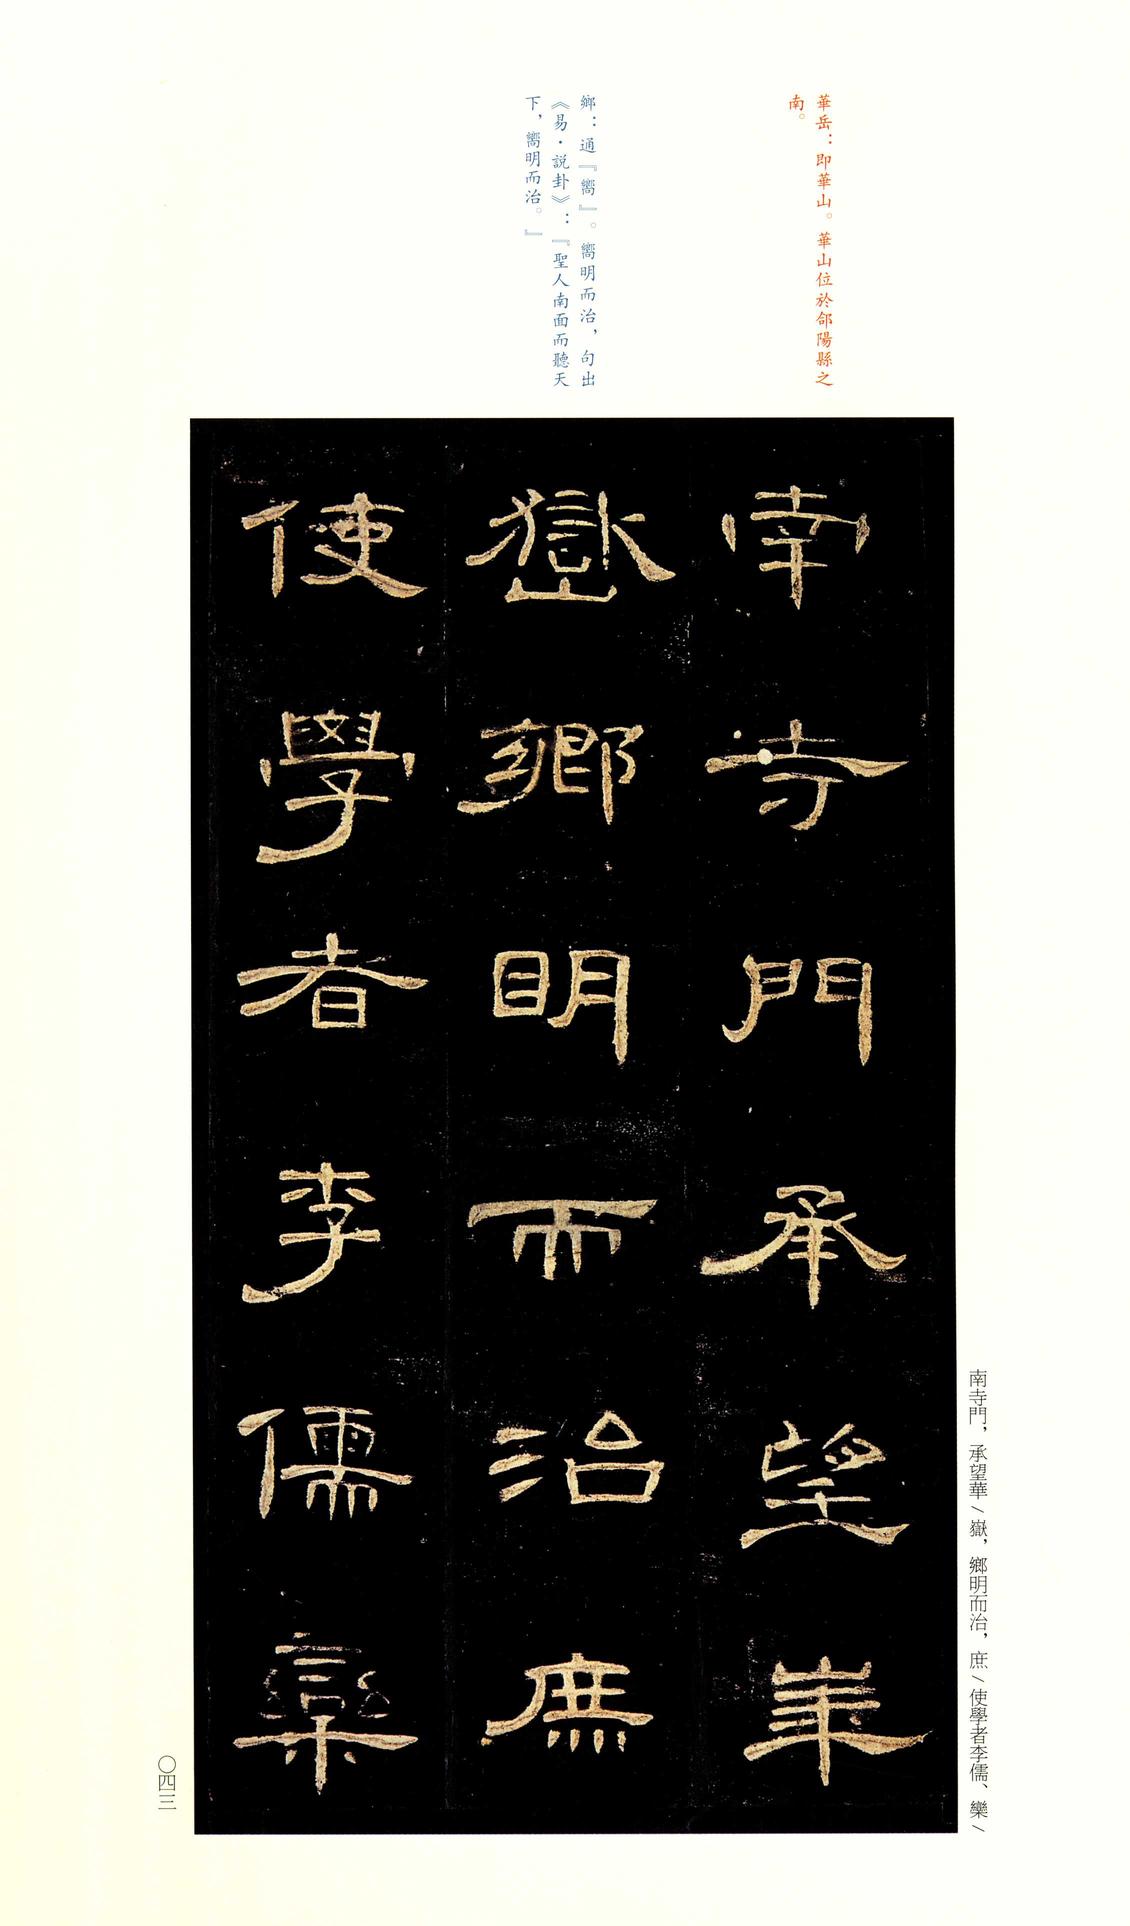 華岳：即華山。華山位於郃陽縣之
南。
鄉：通『嚮』。嚮明而治，句出
《易·説卦》：『聖人南面而聽天
下，嚮明而治。』
南寺門承望華
嶽鄉明而治庶
使學者李儒欒
南寺門，承望華／嶽，鄉明而治，庶／使學者李儒、欒／
〇四三